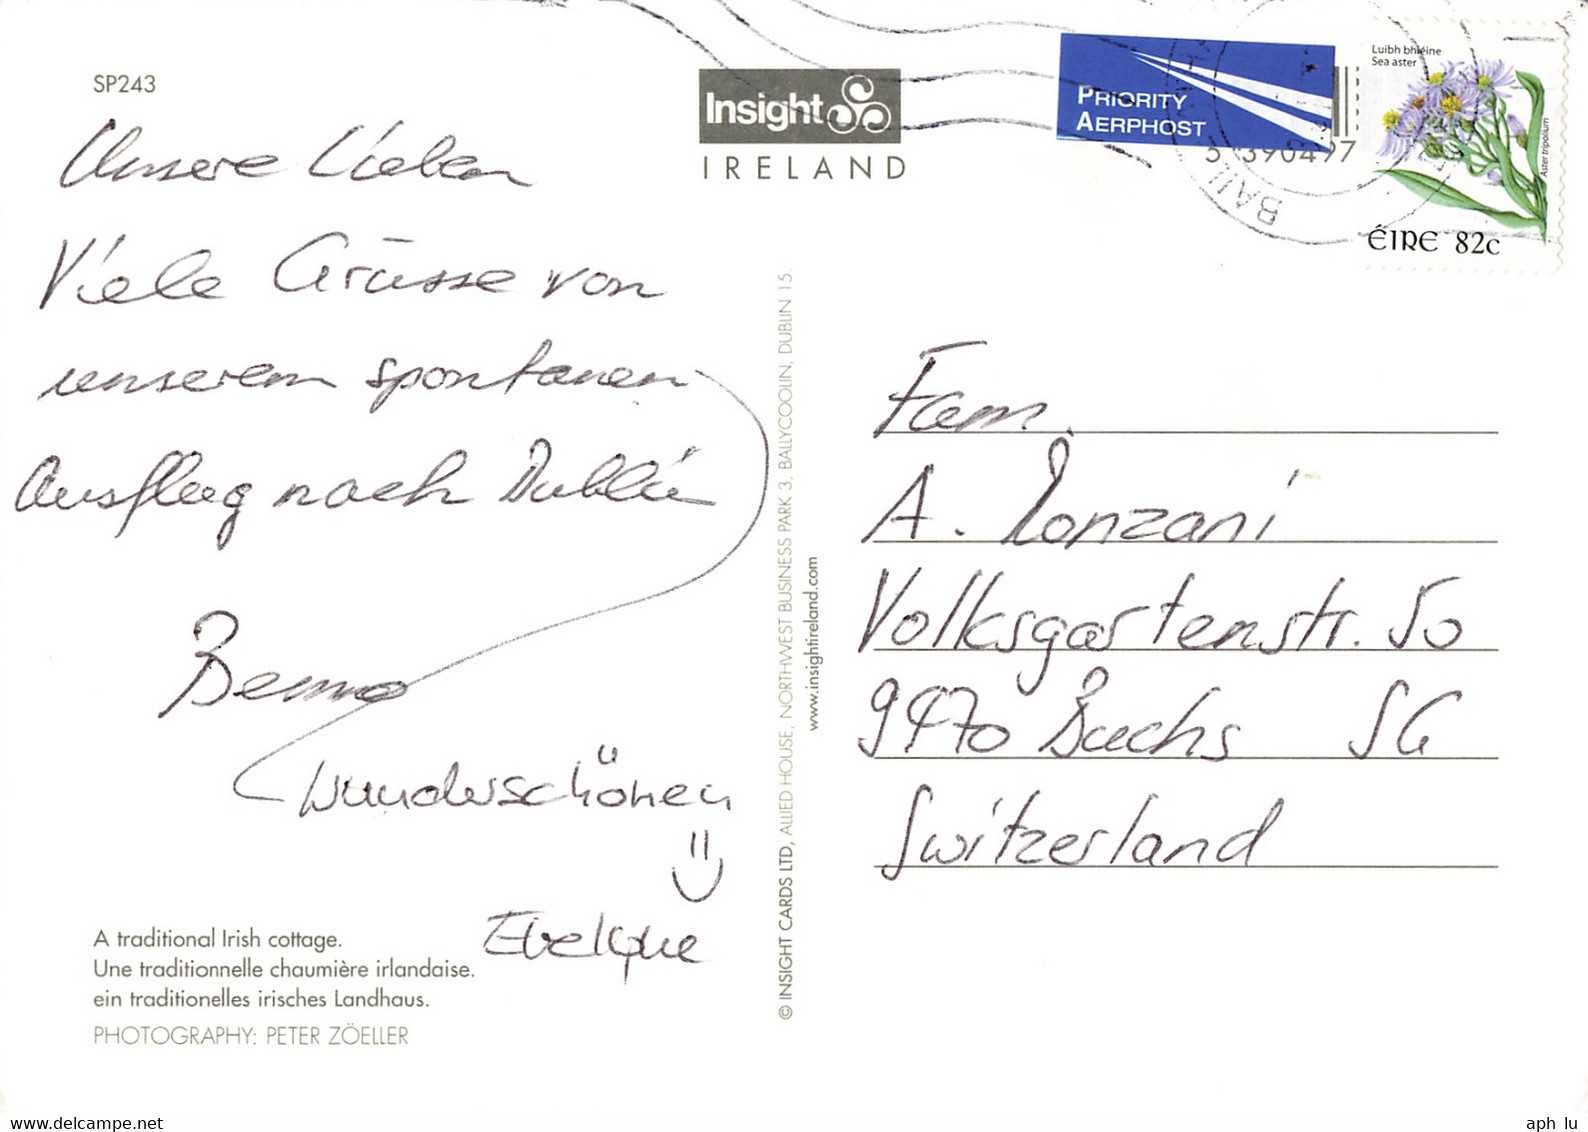 SP243
Insight
IRELAND
PRIORITY
AERPHOST
5 390497
BAILE
Luibh bhléine
Sea aster
Aster tripolium
ÉIRE 82c
Unsere Lieben
Viele Grüsse von
unserem spontanen
Ausflug nach Dublin
Benno
wunderschönen
Evelyne
A traditional Irish cottage.
Une traditionnelle chaumière irlandaise.
ein traditionelles irisches Landhaus.
PHOTOGRAPHY: PETER ZÖELLER
© INSIGHT CARDS LTD, ALLIED HOUSE, NORTHWEST BUSINESS PARK 3, BALLYCOOLIN, DUBLIN 15.
www.insightireland.com
Fam.
A. Ronzani
Volksgartenstr. 50
9470 Buchs SG
Switzerland
aph_lu